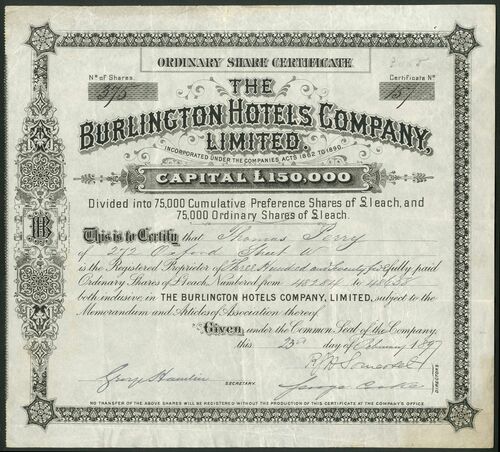 ORDINARY SHARE CERTIFICATE
No of Shares. Certificate No
375 157
THE
BURLINGTON HOTELS COMPANY,
LIMITED.
INCORPORATED UNDER THE COMPANIES ACTS 1862 TO 1890.
CAPITAL £150,000
Divided into 75,000 Cumulative Preference Shares of £1 each, and
75,000 Ordinary Shares of £1 each.
This is to Certify that Thomas Perry
of 212 Oxford Street W
is the Registered Proprietor of Three Hundred and Seventy five fully paid
Ordinary Shares of £1 each, Numbered from 48284 to 48658
both inclusive in THE BURLINGTON HOTELS COMPANY, LIMITED, subject to the
Memorandum and Articles of Association thereof
Given, under the Common Seal of the Company,
this 23rd day of February 1897
George
SECRETARY.
George
DIRECTORS
NO TRANSFER OF THE ABOVE SHARES WILL BE REGISTERED WITHOUT THE PRODUCTION OF THIS CERTIFICATE AT THE COMPANY'S OFFICE